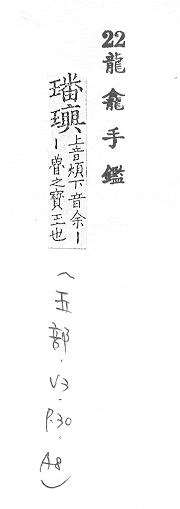 22 龍龕手鑑
璠璵上音煩下音余丨
丨魯之寶玉也
(玉部.V3.P.30.A8)